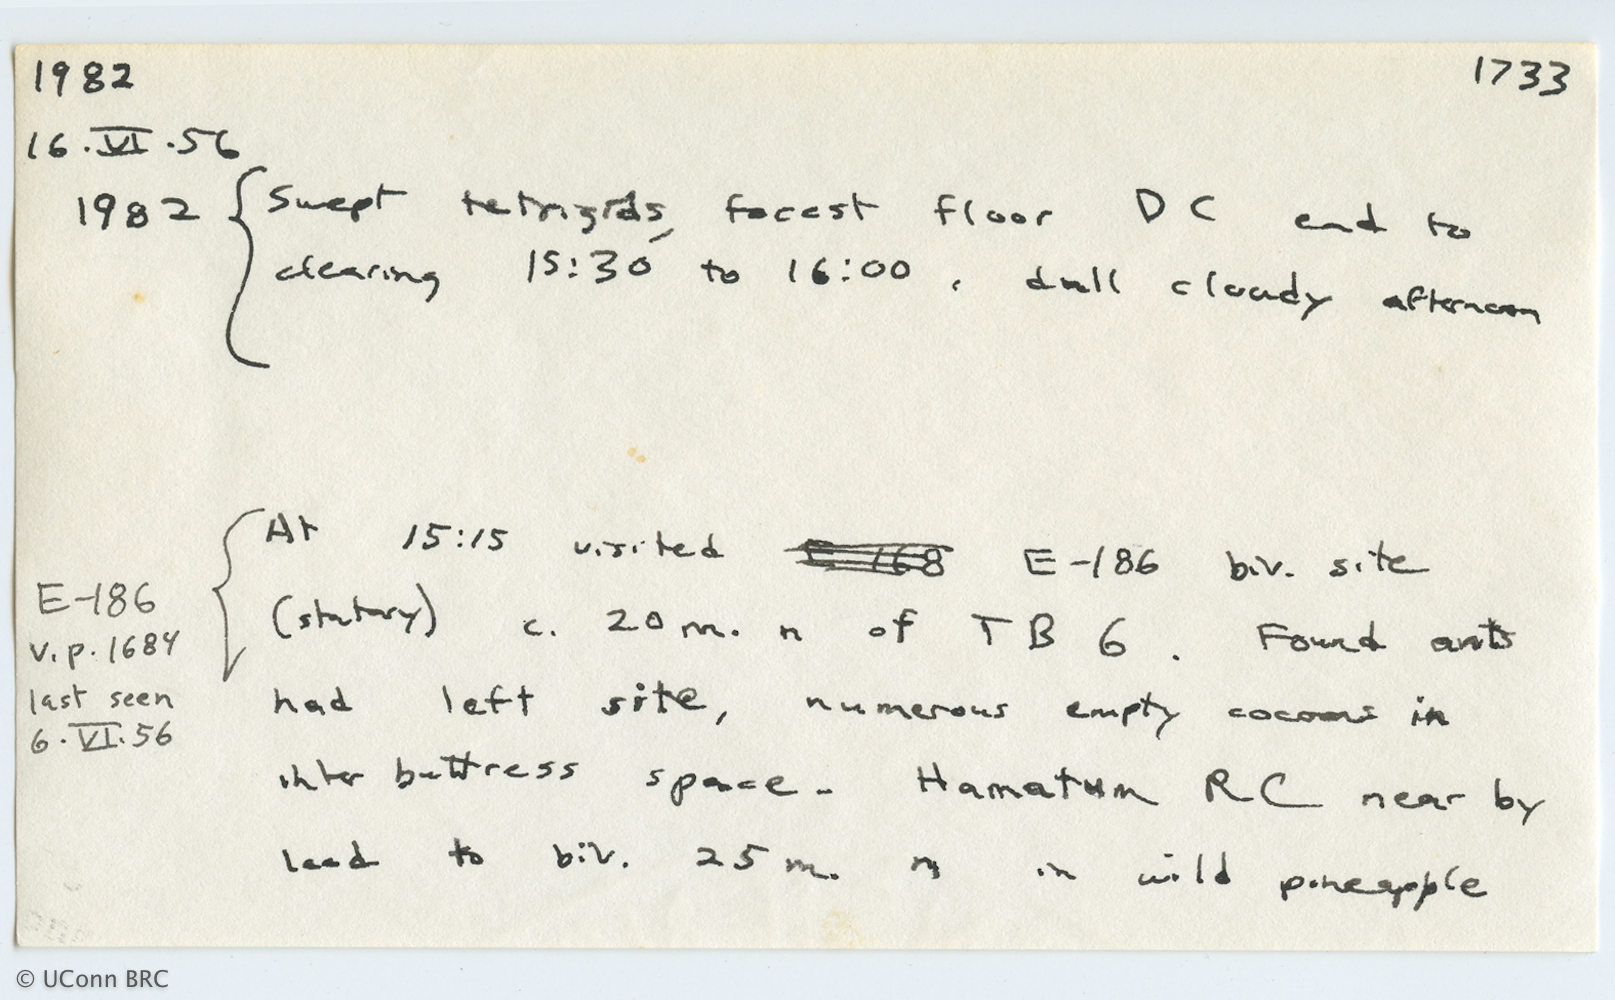 1982
1733
16.VI.56
1982
Swept tetrigids, forest floor DC end to
clearing 15:30 to 16:00. dull cloudy afternoon
At 15:15 visited E-168 E-186 biv. site
(statary) c. 20 m. n of TB 6. Found ants
had left site, numerous empty cocoons in
inter buttress space. Hamatum RC near by
lead to biv. 25 m. n in wild pineapple
E-186
v.p. 1684
last seen
6.VI.56
© UConn BRC